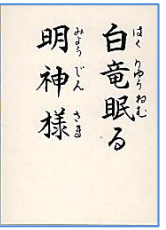 白竜眠る
はくりゆうねむ
明神様
みようじんさま